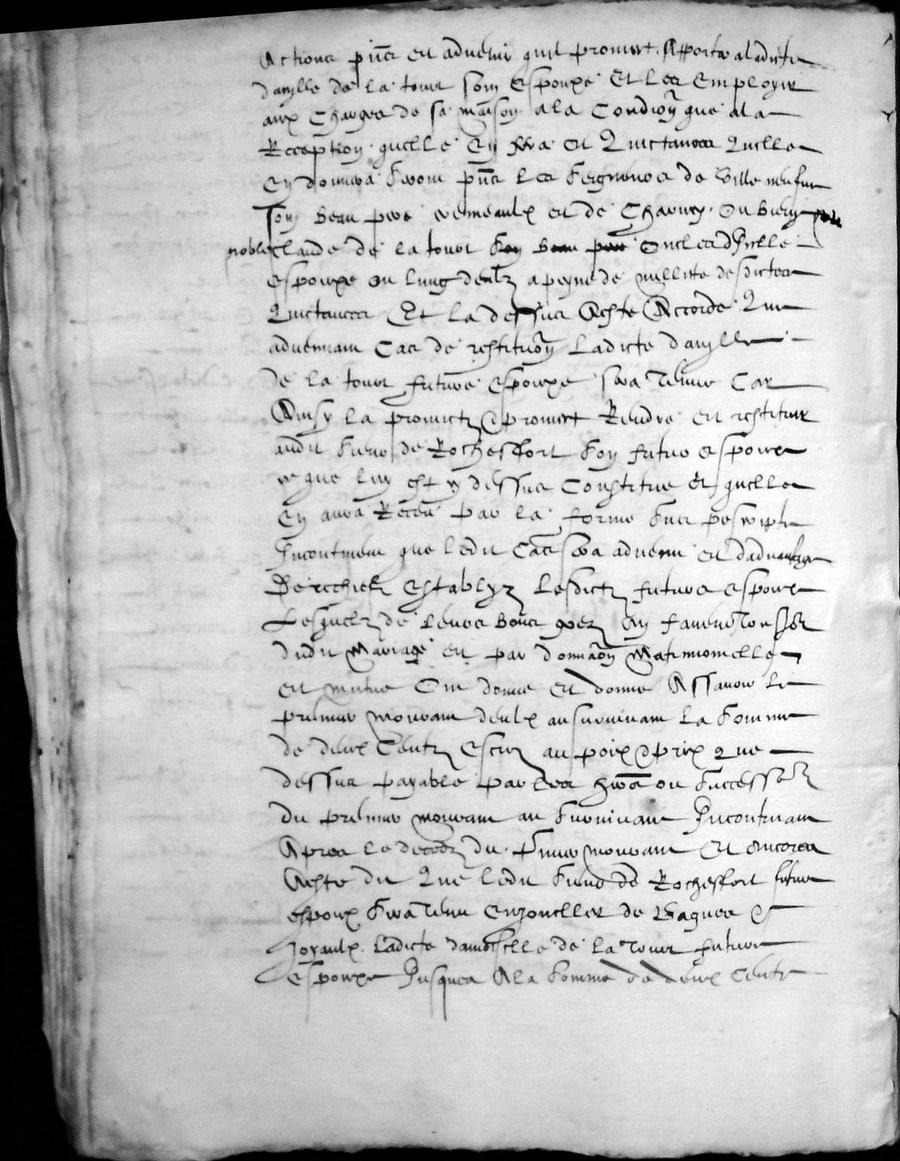 Actions pñs et advenir quil promect apporter a ladicte
damlle de la tour son espouze et les employer
aux charges de sa maison a la condition que a la
Reception quelle en fera et quictances quelle
en donnera seront pñs les seigneurs de Villeneufve
son beau pere et de Charney ou bien
noble claude de la tour oncle dicelle
espouze ou lung deulx a peyne de nullite desdictes
quictances Et la dessus a este accorde que
advenant cas de restitution ladicte damlle
de la tour future espouze sera tenue car
ainsy la promict & promect rendre et restituer
audit sieur de Rocheffort son futur espoux
ce que luy est cy dessus constitue et quelle
en aura receu par la forme sus escripte
Incontinent que ledit cas sera advenu et dadvantage
establyz lesdictz futurs espoux
Lesquelz de leurs bons grez en faveur
dudit mariage et par donnaõn matrimonielle
et mutue ont donne et donne Assavoir le
premier mourant deulx au survivant la somme
de deux centz escuz au poix & prix que
dessus payable par les hers ou successeurs
du premier mourant au survivant Incontinant
Apres le deces du premier mourant Et encores
A este dit que ledit sieur de Rochesfort futur
espoux sera tenu enjoueller de bagues &
Joyaulx ladicte damoiselle de la Tour future
espouze Jusques a la somme de deux centz